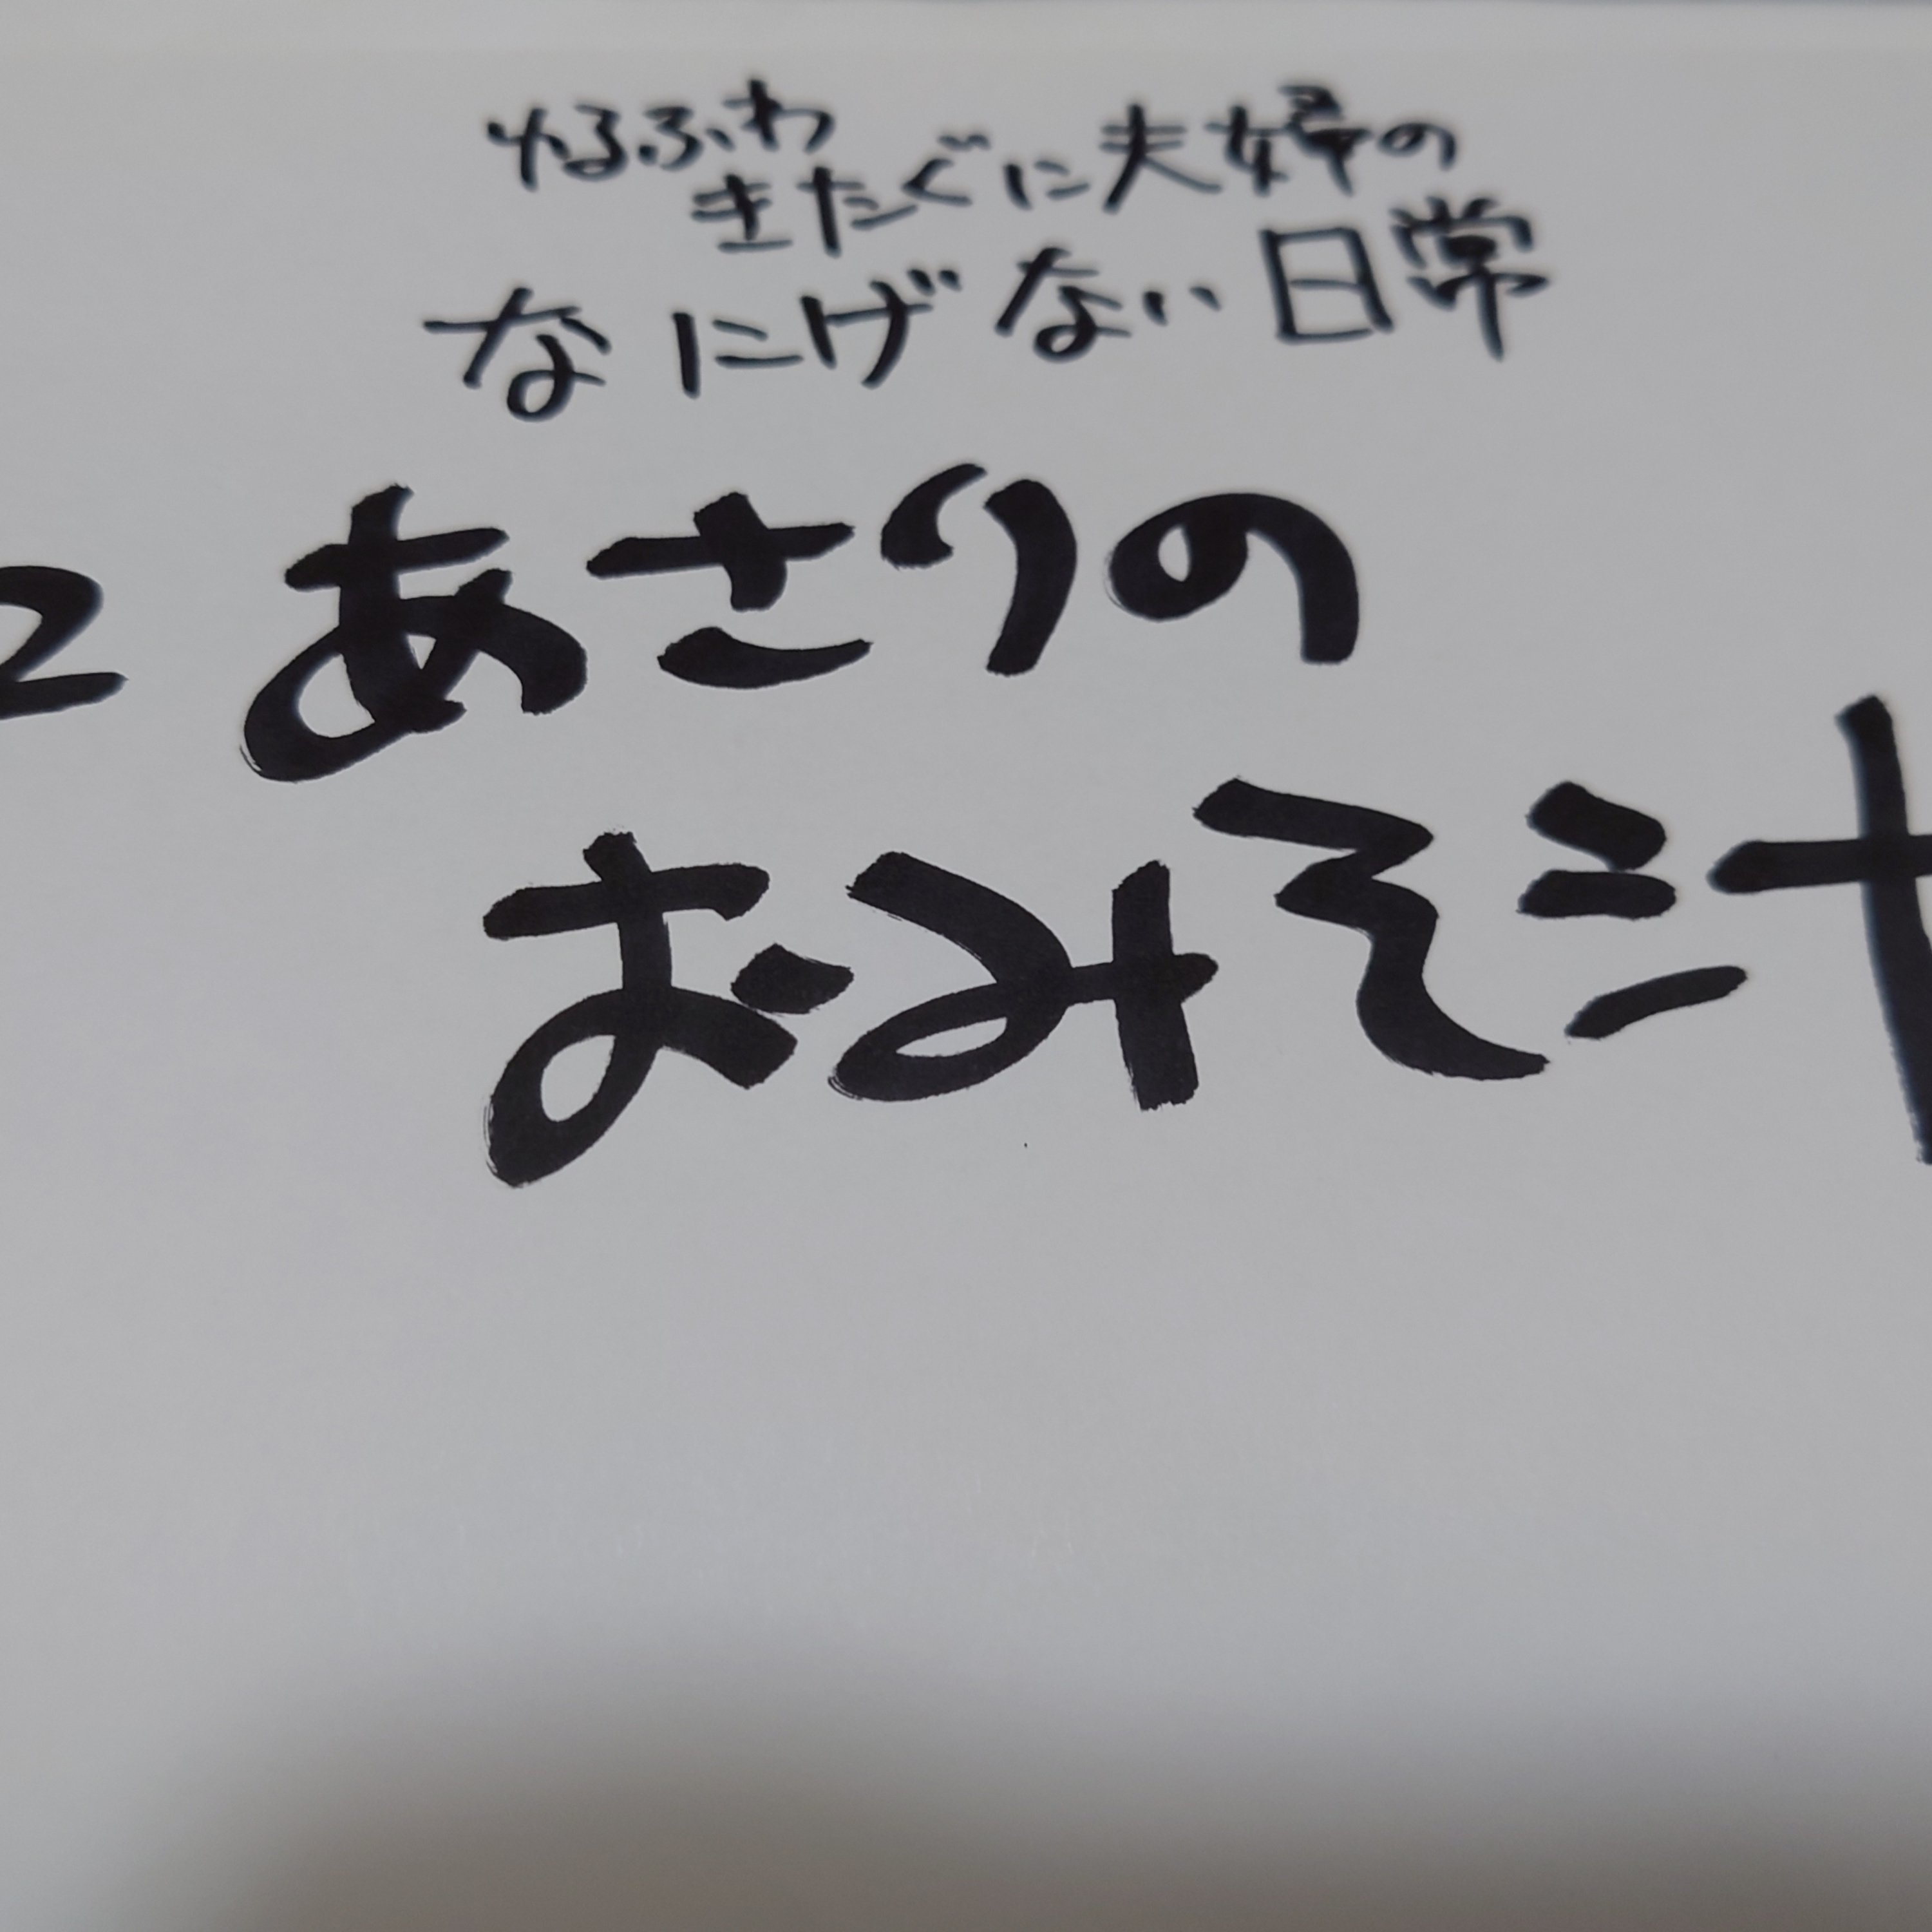 ゆるふわ
きたぐに夫婦の
なにげない日常
2 あさりの
おみそ汁